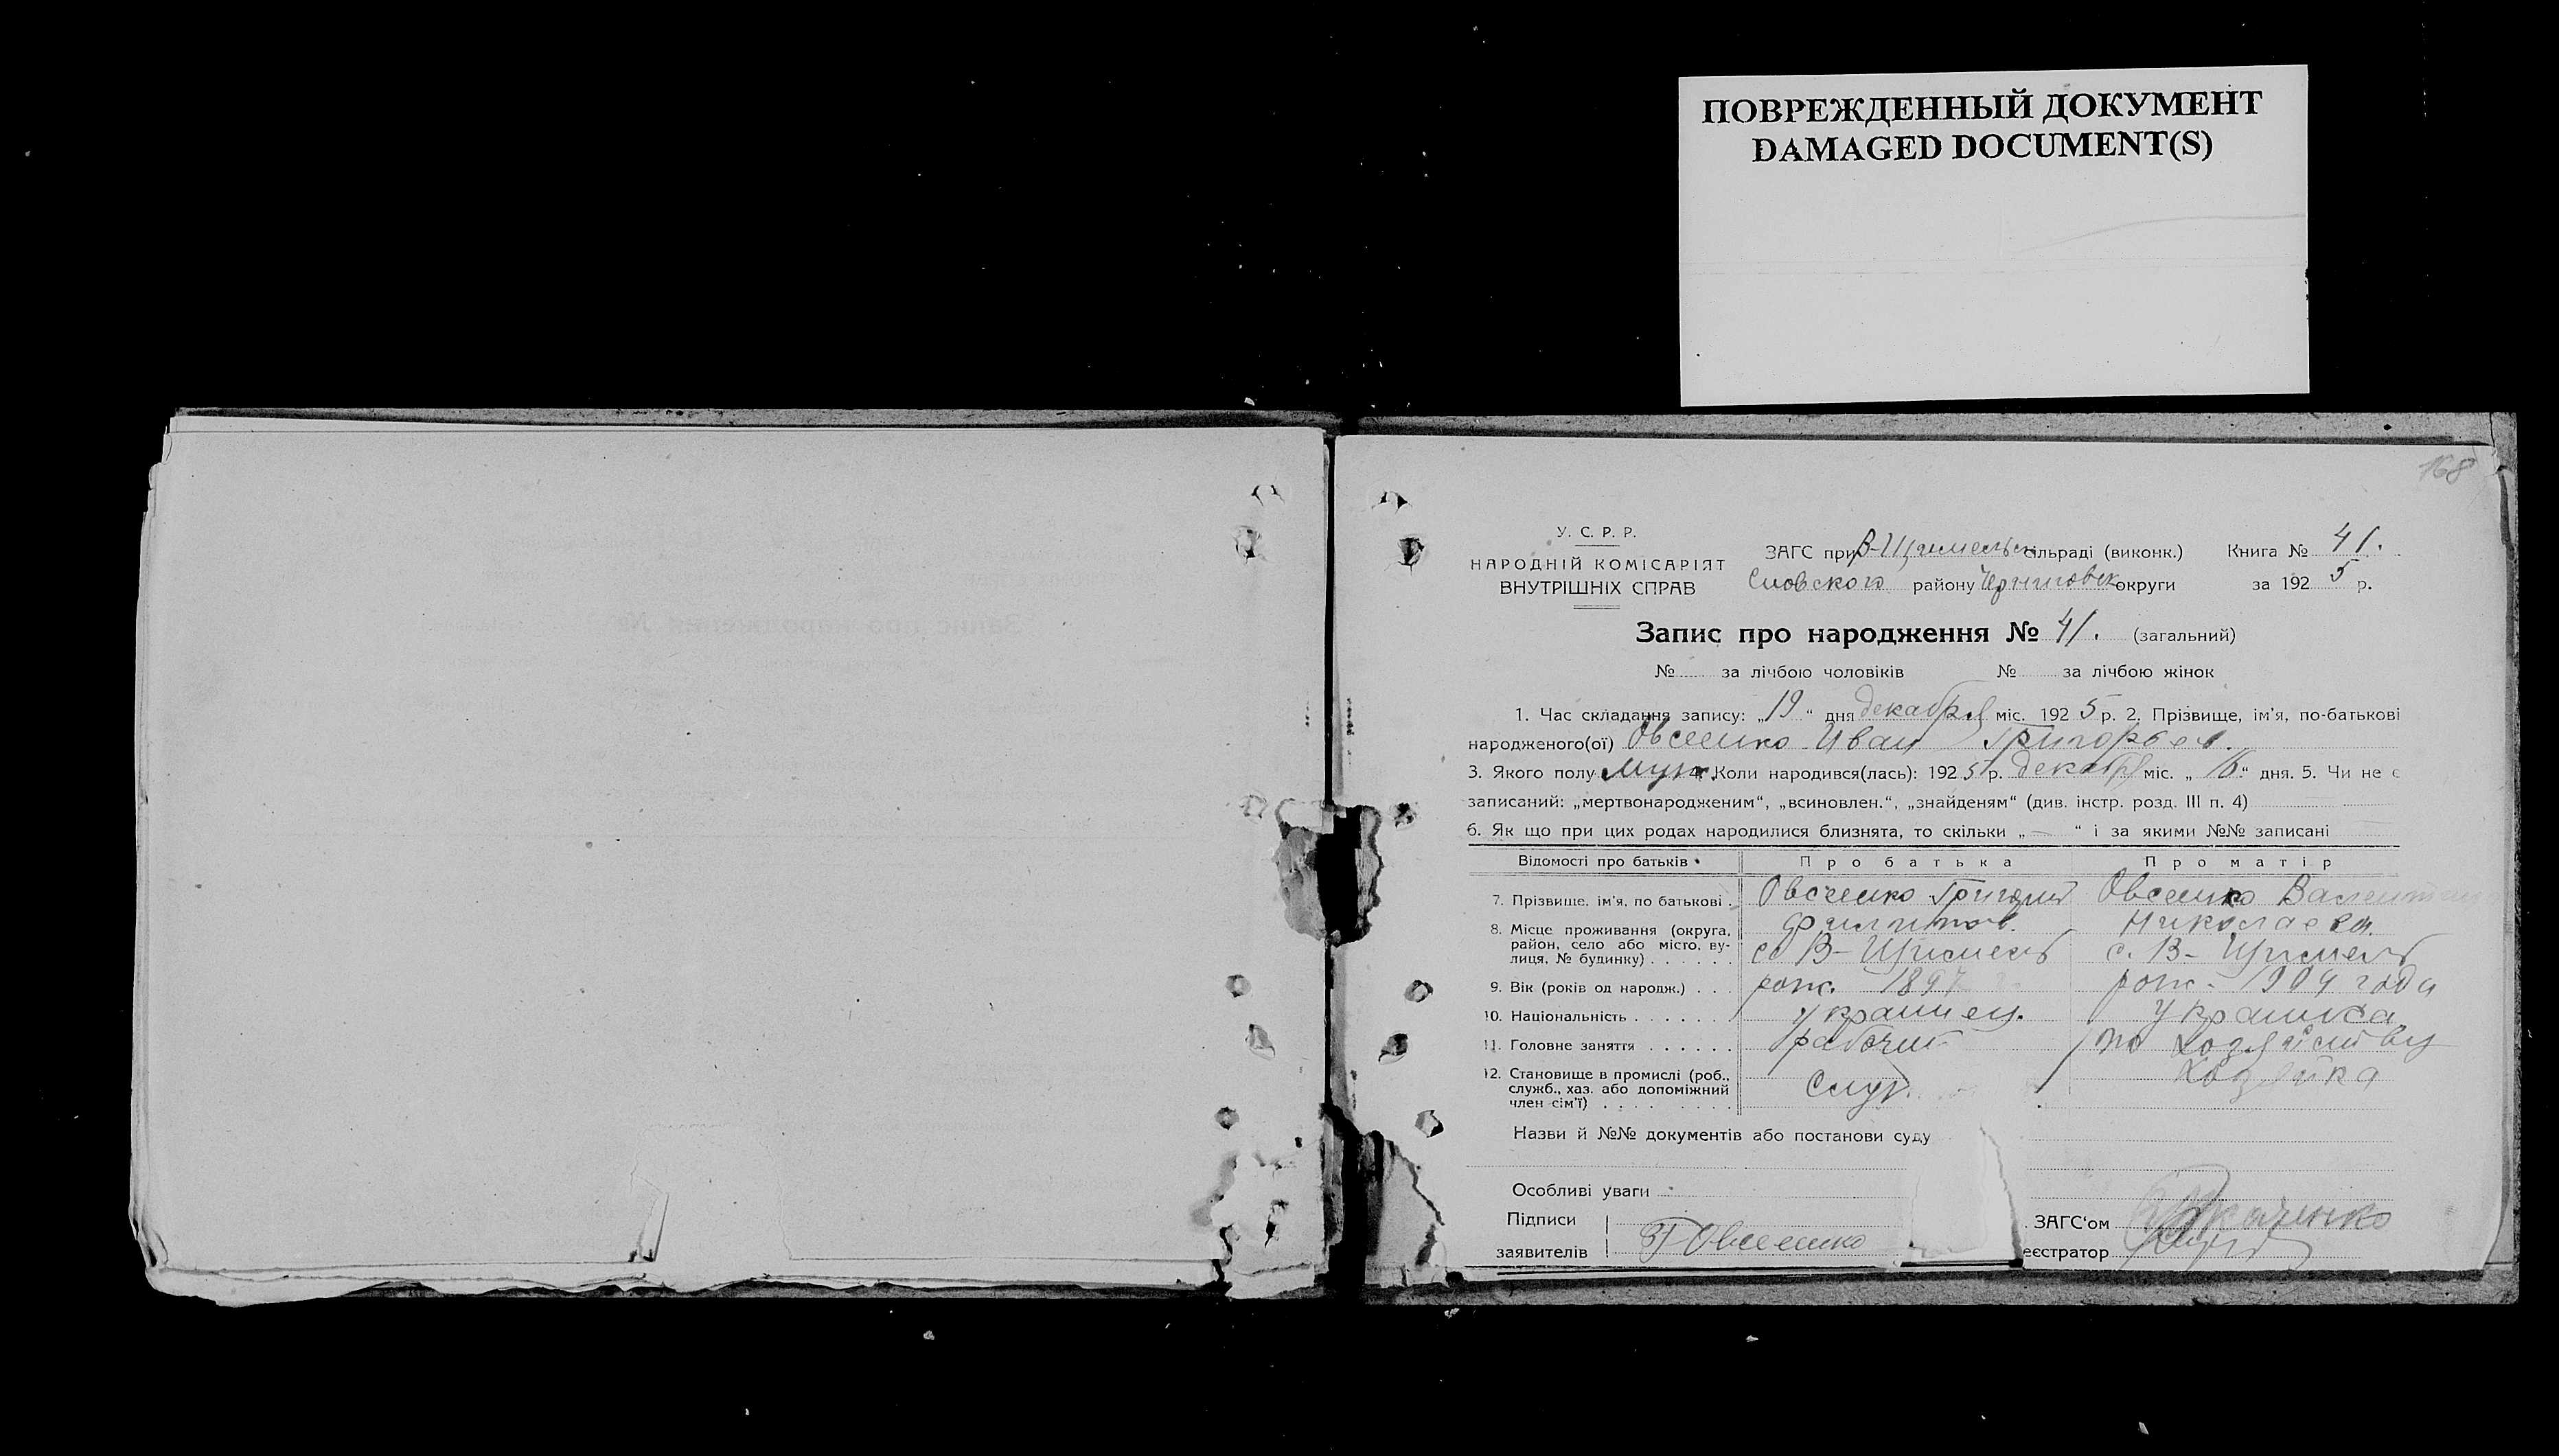 ПОВРЕЖДЕННЫЙ ДОКУМЕНТ
DAMAGED DOCUMENT(S)
168
У. С. Р. Р.
НАРОДНІЙ КОМІСАРІЯТ
ВНУТРІШНІХ СПРАВ
ЗАГС при сільраді (виконк.) Книга № 41.
району округи за 1925 р.
Запис про народження № 41. (загальний)
№ за лічбою чоловіків № за лічбою жінок
1. Час складання запису: „19“ дня декабря міс. 1925 р. 2. Прізвище, ім'я, по-батькові
народженого(ої) Овсеенко Иван Григорьев.
3. Якого полу Муж. Коли народився(лась): 1925 р. декабря міс. „16“ дня. 5. Чи не є
записаний: „мертвонародженим“, „всиновлен.“, „знайденям“ (див. інстр. розд. III п. 4)
6. Як що при цих родах народилися близнята, то скільки „—“ і за якими №№ записані
Відомості про батьків Про батька Про матір
7. Прізвище, ім'я, по батькові . Овсеенко Григорий Овсеенко
Филипов. Николаевн.
8. Місце проживання (округа,
район, село або місто, ву-
лиця, № будинку) . . . . . . с. В- с. В-
9. Вік (років од народж.) . . . рож. 1897 рож. 1904 года
10. Національність . . . . . . . украинец. украинка
11. Головне заняття . . . . . . рабочий по хозяйству
12. Становище в промислі (роб.,
служб., хаз. або допоміжний
член сім'ї) . . . . . . . . . Служ. Хозяйка
Назви й №№ документів або постанови суду
Особливі уваги
Підписи ЗАГС'ом Ткаченко
заявителів Г Овсеенко еєстратор